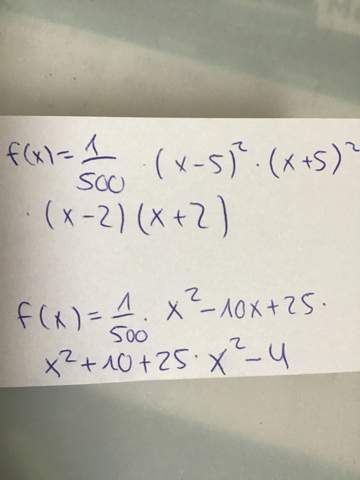 f(x) = 1/500 · (x-5)² · (x+5)²
· (x-2)(x+2)
f(x) = 1/500 · x² - 10x + 25 ·
x² + 10 + 25 · x² - 4